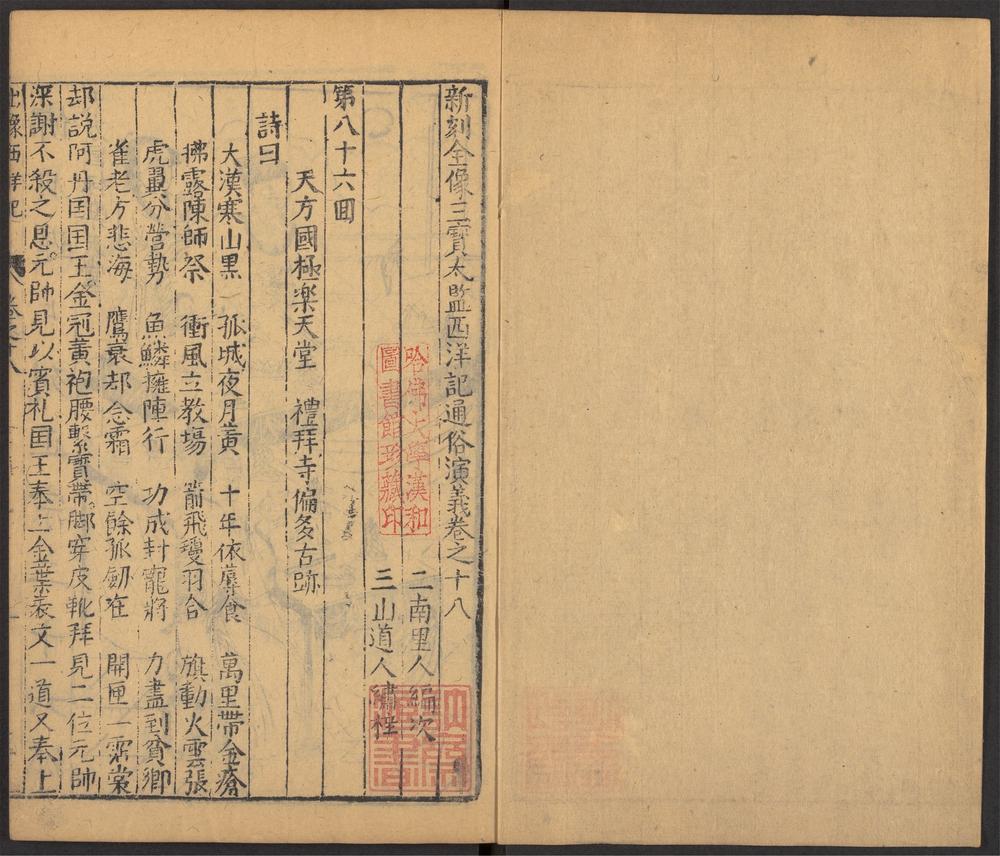 新刻全像三寳太監西洋記通俗演義卷之十八
二南里人編次
三山道人繡梓
哈佛大學漢和
圖書館珍藏印
第八十六囬
天方國極楽天堂 禮拜寺偏多古跡
詩曰
大漢寒山黒 孤城夜月黄 十年依蓐食 萬里帶金瘡
拂露陳師祭 衝風立教塲 箭飛瓊羽合 旗動火雲張
虎翼分營勢 魚鱗擁陣行 功成封寵將 力盡到貧鄉
雀老方悲海 鷹衰却念霜 空餘孤劒在 開匣一霑裳
却説阿丹囯囯王金冠黄袍腰繫寳帶脚穿皮靴拜見二位元帥
深謝不殺之恩元帥見以賓礼囯王奉上金葉表文一道又奉上
出像西洋記 卷之十八